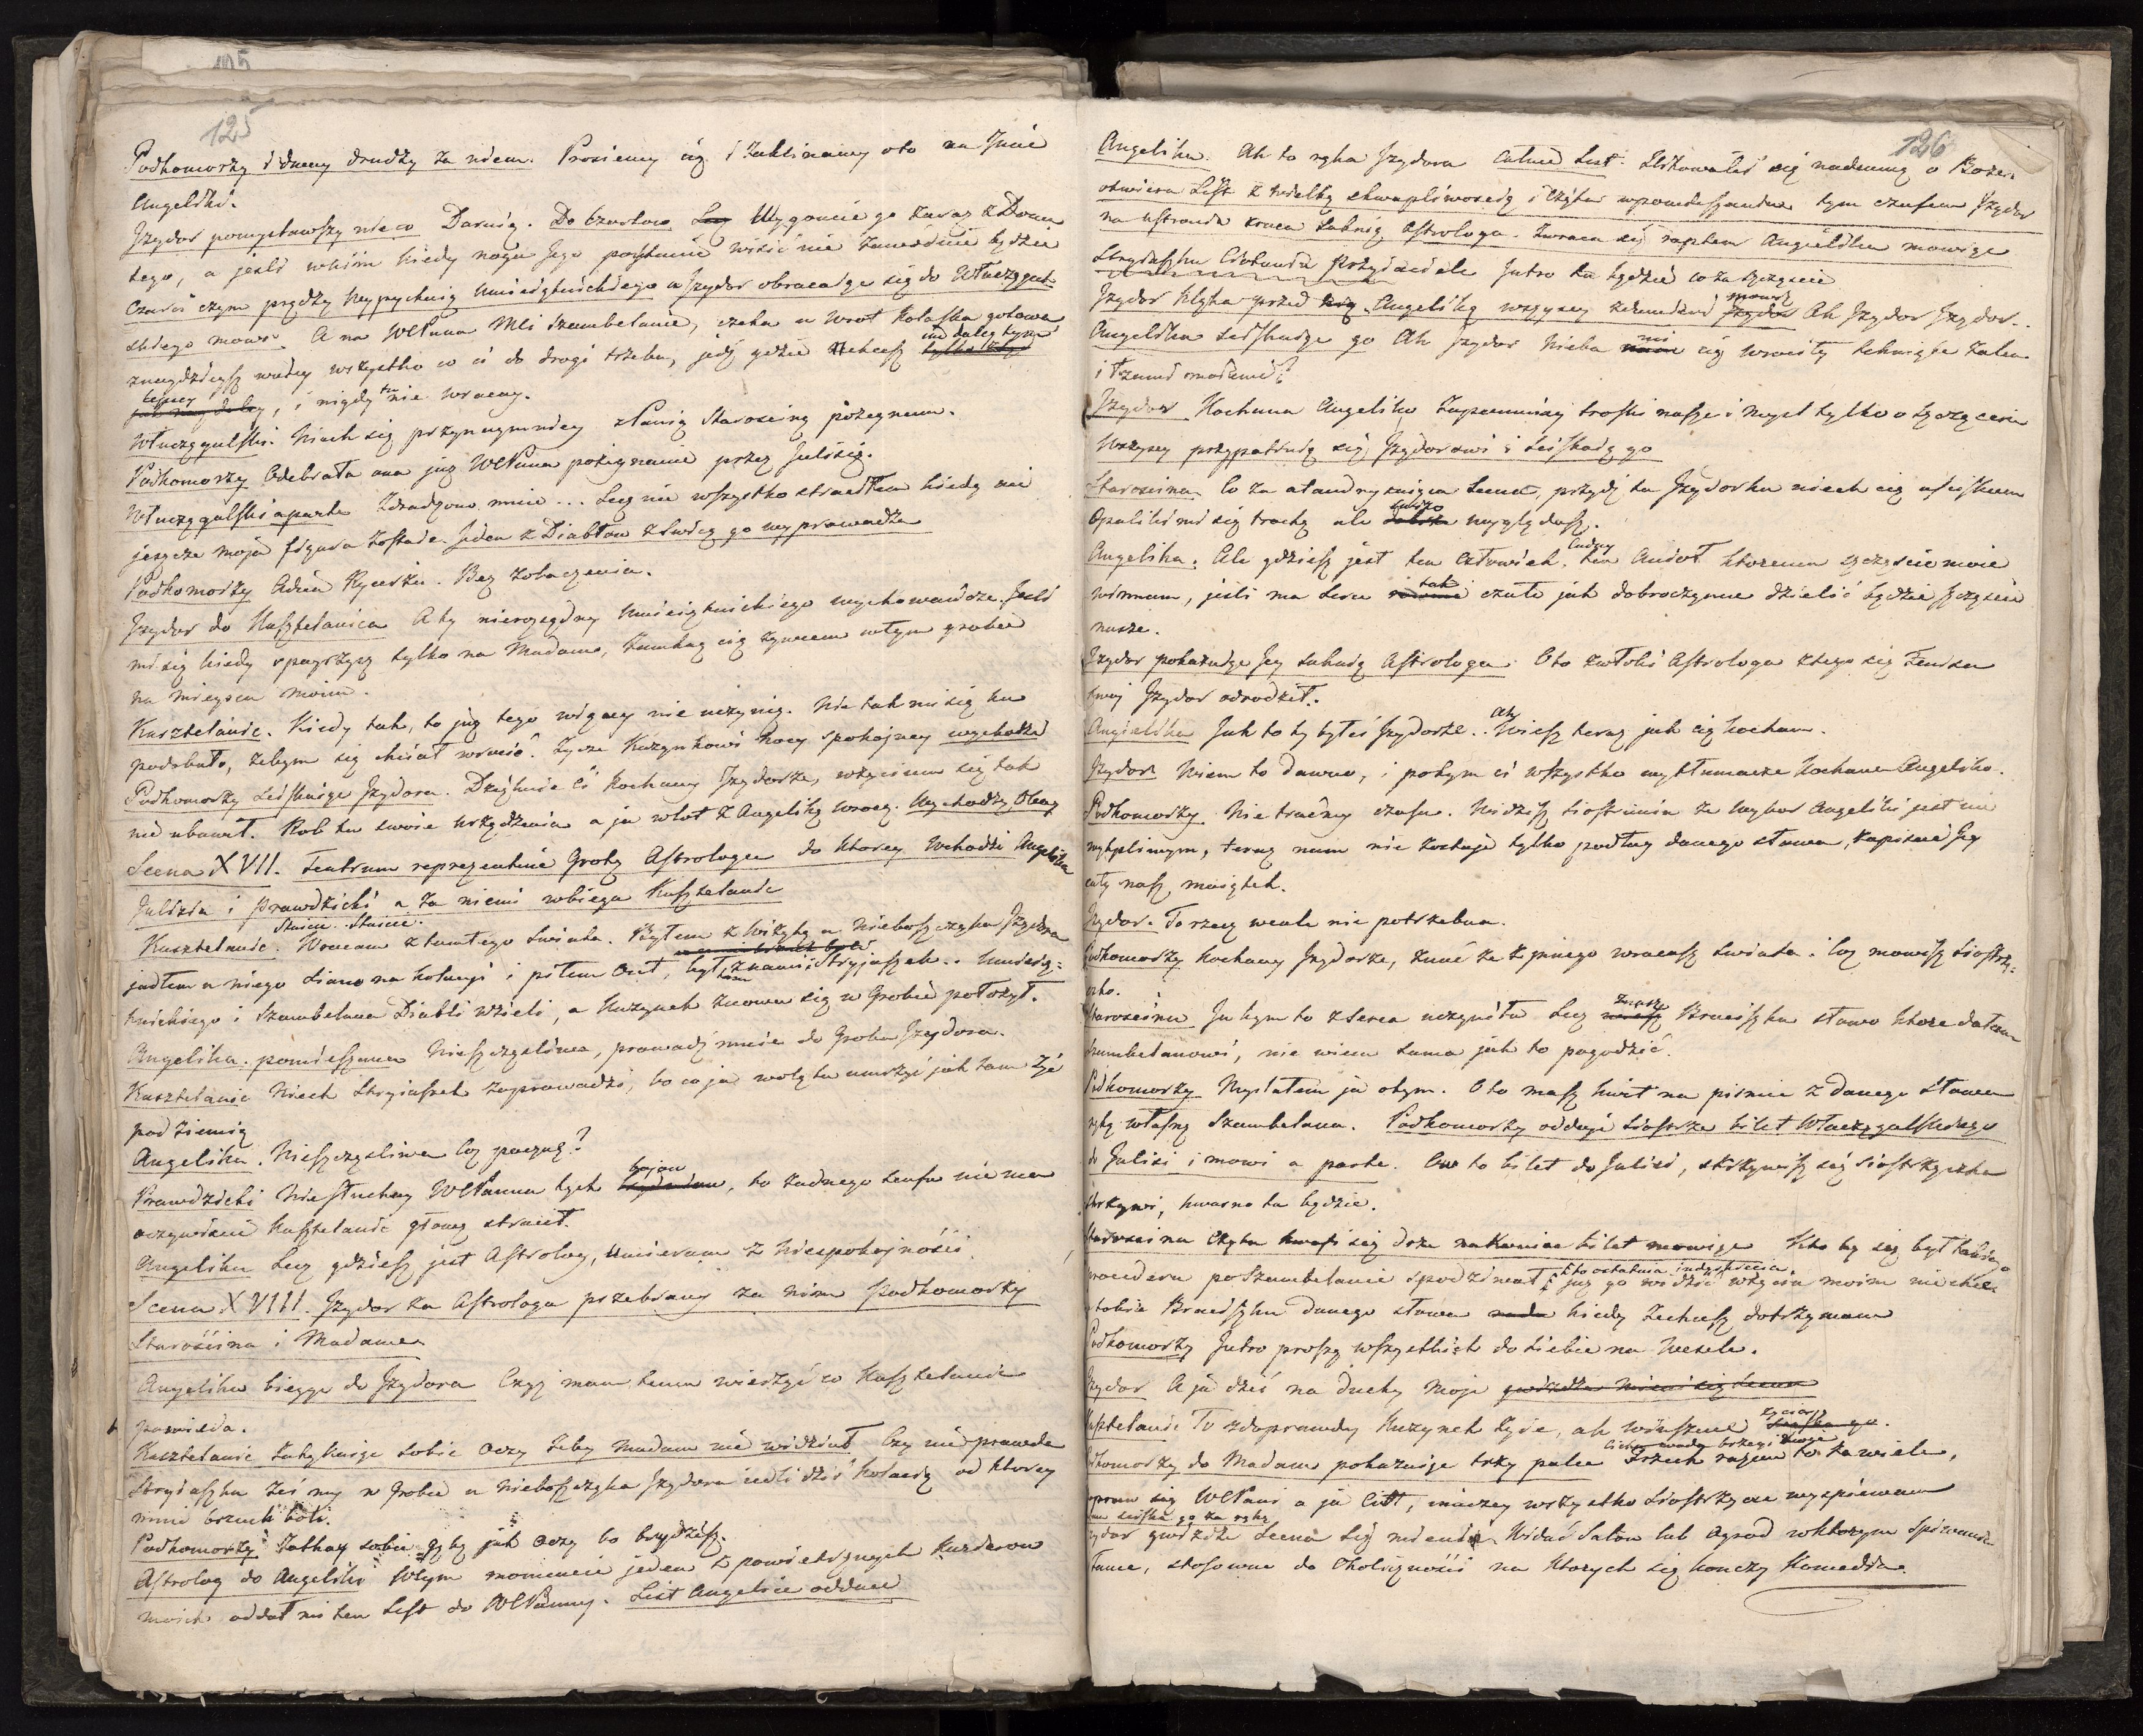 125
Podkomorzy i dwaj drudzy za niem. Prosiemy cię i zaklinamy oto na Jmie
Angeliki.
Jzydor pomyslawszy nieco Daruię. Do Czartow Lecz Wygonie go zaraz z Domu
tego, a jesli w nim kiedy noga Jego postanie wisić nie zaniedbnie będzie
Czarci czym prędzy wypychaią Umizgknickiego a Jzydor obracaiąc się do Włuczygul-
skiego mowi. A na WCPana Mci Szambelanie, czeka u wrot kolaska gotowa
znaydziesz w niey wszystko co ci do drogi trzeba, jedź gdzie zechcesz tylko im daley tym
lepiey, i nigdy tu nie wracay.
Włuczygulski. Niech się przynaymniey z Panią Starosciną pożegnam.
Podkomorzy Odebrała ona już WCPana pożegnanie przez Julisię.
Włuczygulski a parte Zdradzono mnie... Lecz nie wszystko straciłem kiedy mi
jeszcze moja figura zostaie. Jeden z Diabłow z świcą go wyprowadza
Podkomorzy Adieu Rycerzu. Bez zobaczenia.
Jzydor do Kasztelanica A ty nierozsądny Umizgknickiego wychowańcze. Jesli
mi się kiedy spoyrzysz tylko na Madame, zamkną cię żywcem w tym grobie
na mieyscu moim.
Kasztelanic. Kiedy tak, to już tego więcey nie uczynię. Nie tak mi się tu
podobało, żebym się chciał wrucić. Zycze Kuzynkowi nocy spokoyney wychodzi
Podkomorzy sciskaiąc Jzydora. Dziękuie Ci kochany Jzydorze, w życiem się tak
nie ubawił. Rob tu swoie urządzenia a ja wlot z Angeliką wrocę. Wychodzą Obay
Scena XVII. Teatrum reprezentuie Grotę Astrologa do ktorey Wchodzi Angelika
Julisia i Prawdzicki a za niemi wbiega Kasztelanic
Kasztelanic. Stuicie. Stuicie. Wracam z tamtego Swiata. Byłem z wizytą u Nieboszczyka Jzydora
jadłem u niego siano na kolacyi i piłem Ocet, był tam z nami i Stryjaszek.. Umizg-
knickiego i Szambelana Diabli wzieli, a Kuzynek znowu się w Grobie położył.
Angelika. pomieszana Nieszczęsliwa, prowadź mnie do Grobu Jzydora.
Kasztelanic Niech Stryiaszek zaprowadzi, bo co ja wolę tu umrzyć jak tam żyć
pod ziemią
Angelika. Nieszczęsliwa Coż pocznę?
Prawdzicki Nie słuchay WCPanna tych bajow, bo żadnego sensu nie ma
oczywiscie Kasztelanic głowę stracił.
Angelika Lecz gdzież jest Astrolog, umieram z Niespokojności.
Scena XVIII. Jzydor za Astrologa przebrany za nim Podkomorzy
Starościna i Madame
Angelika biegąc do Jzydora Czyż mam temu wierzyć co Kasztelanic
powiada.
Kasztelanic zatykaiąc sobie Oczy żeby Madam nie widział Czy nie prawda
Stryiaszku żeś my w Grobie u Nieboszczyka Jzydora iedli dziś kolacyą od ktorey
mnie brzuch boli.
Podkomorzy Zatkay sobie gębę jak Oczy bo bredzisz.
Astrolog do Angeliki W tym momencie jeden z powietrznych kurierow
moich oddał mi ten List do WCPanny. List Angelice oddaie
126
Angelika. Ah to ręka Jzydora całuie List. Zlitowałeś się nademną o Boże.
otwiera List z wielką skwapliwoscią i czyta w pomieszaniu tym czasem Jzydor
na ustroniu zrzuca suknią Astrologa. Zwraca się raptem Angelika mowiąc
Stryiaszku Ciotuniu Przyiaciele Jutro tu będzie co za szczęscie
Jzydor klęka przed Angeliką wszyscy zdumieni mowią Ah Jzydor Jzydor..
Angelika sciskaiąc go Ah Jzydor Nieba mi cię wrociły tchnięte żalem
i łzami moiemi
Jzydor Kochana Angeliko zapomniay troski nasze i mysl tylko o szczęsciu
Wszyscy przypatruią się Jzydorowi i sciskaią go
Starościna. Co za cudowna scena, przydź tu Jzydorku niech cię usciskam
Opaliłeś mi się trochę ale dobrze wyglądasz.
Angelika. Ale gdzież jest ten Człowiek, ten Cudny Anioł ktoremu szczęscie moie
winnam, jesli ma serce tak czułe jak dobroczynne dzielić będzie szczęscie
nasze.
Jzydor pokazuiąc Jey suknią Astrologa. Oto zwłoki Astrologa z tego się Feniksa
twoj Jzydor odrodził.
Angelika Jak to ty byłeś Jzydorze.. Ah Wiesz teraz jak cię kocham.
Jzydor. Wiem to dawno, i potym ci wszystko wytłumacze Kochana Angeliko.
Podkomorzy. Nie traćmy czasu. Widzisz Siostruniu że wybor Angeliki jest nie
wątpliwym, teraz nam nie zostaje tylko podług danego słowa, zapisać Jey
cały nasz maiątek.
Jzydor. To rzecz wcale nie potrzebna.
Podkomorzy Kochany Jzydorze, znać że z jnnego wracasz swiata. Coż mowisz Siostrzy-
czko.
Starościna Ja bym to z serca uczyniła Lecz znasz Braciszku słowo ktore dałam
Szambelanowi, nie wiem sama jak to pogodzić.
Podkomorzy Myslałem ja o tym. Oto masz kwit na pismie z danego słowa
ręką własną Szambelana. Podkomorzy oddaje Siostrze bilet Włuczygulskiego
do Julisi i mowi a parte. Ow to bilet do Julisi, skrzywisz się Siostrzyczka
skrzywi, kwasno tu będzie.
Starościna czyta kwasi się drze nakoniec bilet mowiąc Kto by się był takiego
procederu po Szambelanie spodziewał, to ostatnia indyskrecia. już go widzieć w życiu moim nie chcę.
tobie Braciszku danego słowa kiedy zechcesz dotrzymam
Podkomorzy Jutro proszę wszystkich do siebie na Wesele.
Jzydor A ja dziś na Duchy moje gwizdże Mieni się Scena
Kasztelanic To zdoprawdy Kuzynek żyie, ah winszuie życia.
Podkomorzy do Madam pokazuiąc trzy palce Trzech razem to za wiele,
popraw się WCPani a ja cit, inaczey wszystko Siostrzyczce wyspiewam
sciska go za rękę
Jzydor gwiżdże Scena się mieni. Widać Salon lub Ogrod w ktorym Spiewanie
Tance, stosowne do Okoliczności na ktorych się konczy Komedia.